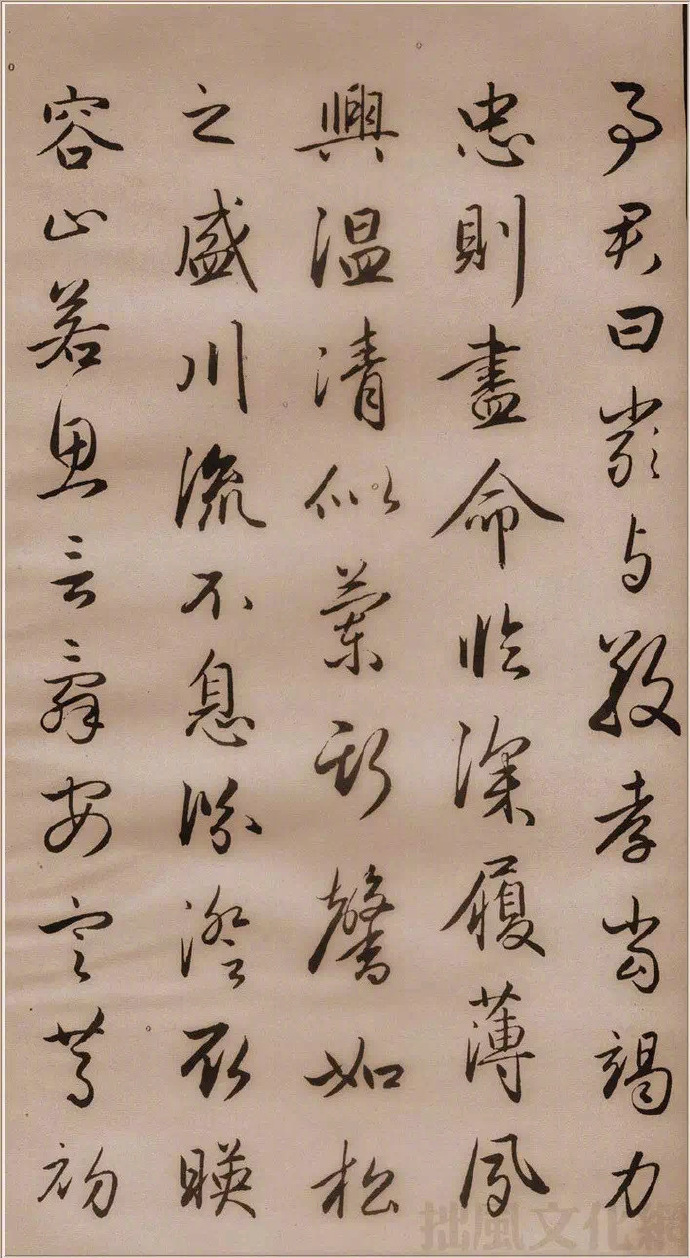 事君曰嚴與敬孝當竭力
忠則盡命臨深履薄夙
興温凊似蘭斯馨如松
之盛川流不息淵澄取暎
容止若思言辭安定篤初
拙風文化網